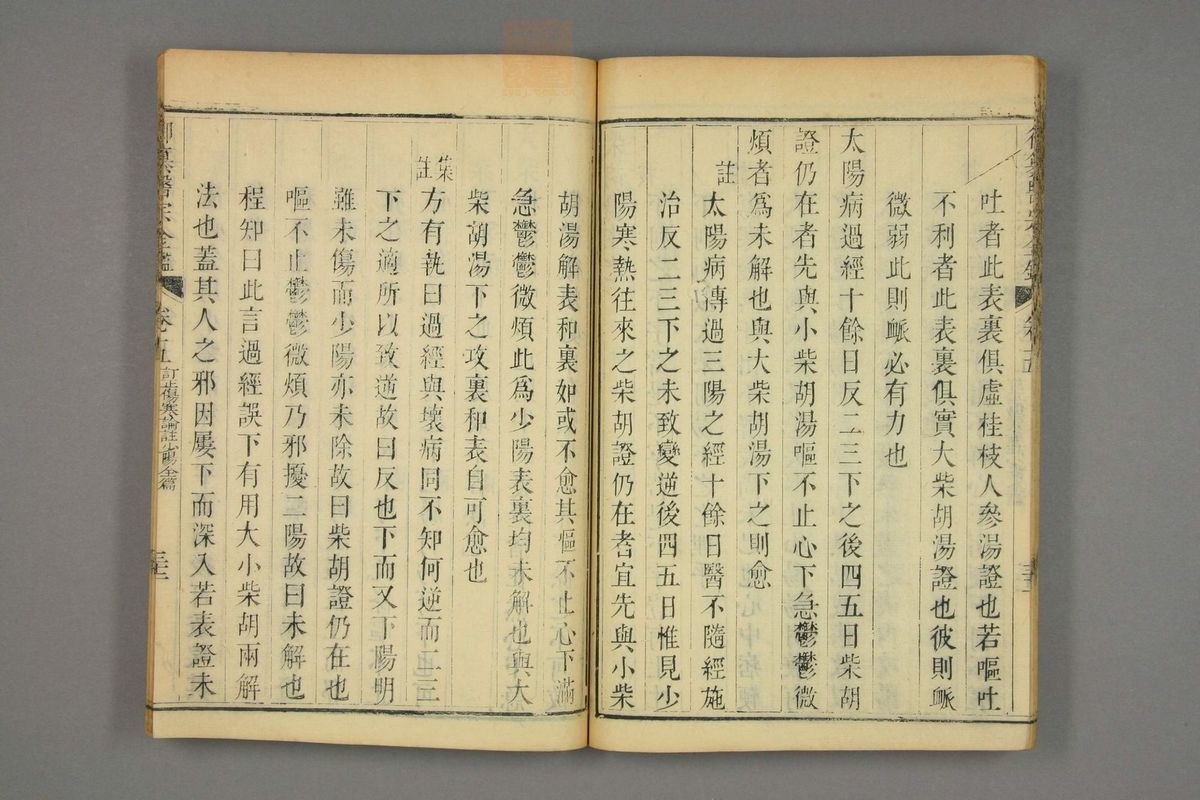 吐者此表裏俱虛桂枝人參湯證也若嘔吐
不利者此表裏俱實大柴胡湯證也彼則脈
微弱此則脈必有力也
太陽病過經十餘日反二三下之後四五日柴胡
證仍在者先與小柴胡湯嘔不止心下急鬱鬱微
煩者為未解也與大柴胡湯下之則愈
註太陽病傳過三陽之經十餘日醫不隨經施
治反二三下之未致變逆後四五日惟見少
陽寒熱往來之柴胡證仍在者宜先與小柴
胡湯解表和裏如或不愈其嘔不止心下滿
急鬱鬱微煩此為少陽表裏均未解也與大
柴胡湯下之攻裏和表自可愈也
集註方有執曰過經與壞病同不知何逆而二三
下之適所以致逆故曰反也下而又下陽明
雖未傷而少陽亦未除故曰柴胡證仍在也
嘔不止鬱鬱微煩乃邪擾二陽故曰未解也
程知曰此言過經誤下有用大小柴胡兩解
法也蓋其人之邪因屢下而深入若表證未
御纂醫宗金鑑
卷五
訂正傷寒論註少陽全篇